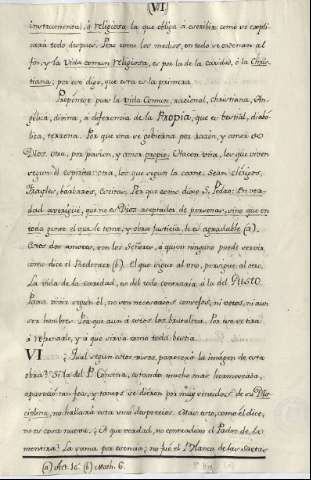 VI
instrumental, ó religiosa la que obliga á escribir como se expli-
cará todo despues. Pero como los medios, en todo se ordenan al
fin, y la Vida comun religiosa, es por la de la caridad, ó la Chris-
tiana; por eso digo, que esta es la primera.
Propónese pues la Vida Comun, racional, christiana, An-
gelica, divina, a diferencia de la Propia, que es bestial, diabo-
lica, terrena. Por que una se gobierna por razón, y amor de
Dios, otra, por pasion, y amor propio. Hacen una, los que viven
segun el espiritu: otra, los que siguen la carne. Sean Clerigos,
Frayles, barbaros, Por que como dixo S. Pedro: En ver-
dad averigüé, qué no es Dios aceptador de personas, sino que en
toda gente el que le teme, y obra justicia, le es agradable (a).
Estos dos amores, son los Señores, á quien ninguno puede servir
como dice el Redentor (b). El que sigue al uno, persigue al otro.
La vida de la caridad, es del todo contraria á la del GUSTO.
Para vivir segun él, no son necesarios consejos, ni votos, ni aun
ser hombres. Por que aun á estos los brutaliza. Por eso se tira
á reformarle, y a que sirva como toda bestia.
VI ¿Qual segun estos visos, parecerá la imágen de esta
obra? Si la del P. estando mucho mas hermoseada,
apareció tan fea, y tantos se dieron por muy ofendidos de su Dis-
ciplina, no hallará esta unos desprecios. Mas esto, como él dice,
no es cosa nueva. ¿A que verdad, no contradixo el Padre de la
mentira? La suma por esencia; no fué el Blanco de las Saetas
(a) Act. 10. (b) Math. 6.